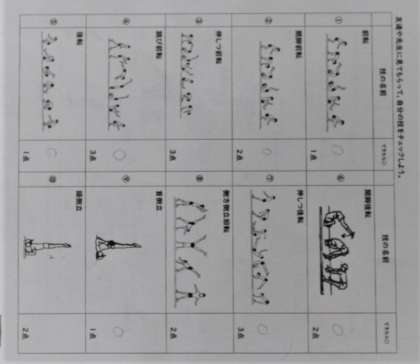 友達や先生に見てもらって、自分の技をチェックしよう。
技の名前
できたら○
① 前転
1点
② 開脚前転
2点
③ 伸しつ前転
3点
④ 跳び前転
3点
⑤ 後転
1点
技の名前
できたら○
⑥ 開脚後転
2点
⑦ 伸しつ後転
3点
⑧ 側方倒立回転
2点
⑨ 首倒立
1点
⑩ 頭倒立
2点